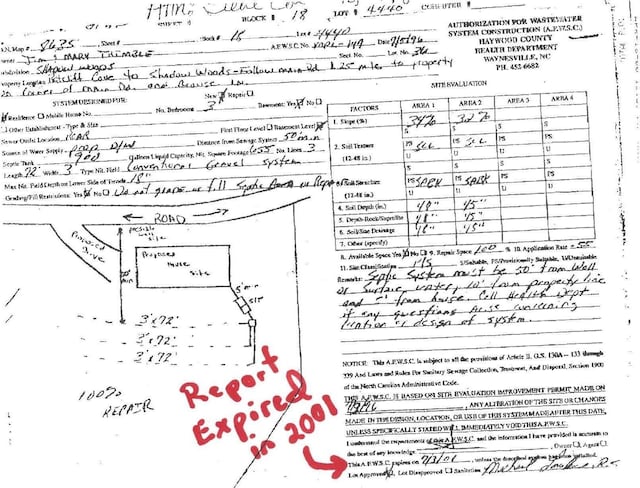 BLOCK # 18 LOT # 4440
S.N. Map # 8635 Sheet # Block # 18 Lot # 4440
Jim & MARY TRIMBLE A.P.W.S.C. No. Date 9/5/96
Subdivision Shadow woods Sect. No. Lot No.
Property Location Cove to Shadow Woods - Follow main Rd 1.25 miles to property
on corner of main Rd and Grouse Ln.
AUTHORIZATION FOR WASTEWATER
SYSTEM CONSTRUCTION (A.P.W.S.C.)
HAYWOOD COUNTY
HEALTH DEPARTMENT
WAYNESVILLE, NC
PH. 452-6682
SYSTEM DESIGNED FOR: New Repair
Residence Mobile Home No. No. Bedrooms 3 Basement: Yes No
Other Establishment - Type & Size
Sewer Outlet Location REAR First Floor Level Basement Level
Source of Water Supply prop D/W Distance from Sewage System 50' min
Septic Tank 900 Gallons Liquid Capacity, Nit. Square Footage 655 No. Lines 3
Length 72' Width 3' Type Nit. Field Conventional Gravel system
Max No. Field Depth on Lower Side of Trench 18"
Grading/Fill Restrictions: Yes No Do not grade or fill Septic Area or Repair
SITE EVALUATION
FACTORS AREA 1 AREA 2 AREA 3 AREA 4
1. Slope (%) 34% 32%
2. Soil Texture S S S S
(12-48 in.) PS SCL PS SCL PS PS
U U U U
3. Soil Structure S S S S
(12-48 in.) PS SABK PS SABK PS PS
U U U U
4. Soil Depth (in.) 48" 45"
5. Depth-Rock/Saprolite 48" 45"
6. Soil/Site Drainage 48" 45"
7. Other (specify)
8. Available Space Yes No 9. Repair Space 100 % 10. Application Rate .55
11. Site Classification P/S S/Suitable, PS/Provisionally Suitable, U/Unsuitable
Remarks: Septic System must be 50' from Well
or Surface water, 10' from property line
and 5' from house. Call Health Dept
if any questions Arise concerning
location or design of system.
ROAD
Proposed
Drive
possible
well
site
Proposed
House
Site
5' min
ST
3' x 72'
3' x 72'
3' x 72'
100%
REPAIR
Report
Expired
in 2001
NOTICE: This A.P.W.S.C. is subject to all the provisions of Article II, G.S. 130A — 333 through
339 And Laws and Rules For Sanitary Sewage Collection, Treatment, And Disposal, Section 1900
of the North Carolina Administrative Code.
THIS A.P.W.S.C. IS BASED ON SITE EVALUATION IMPROVEMENT PERMIT MADE ON
, ANY ALTERATION OF THE SITE OR CHANGES
MADE IN THE DESIGN, LOCATION, OR USE OF THIS SYSTEM MADE AFTER THIS DATE,
UNLESS SPECIFICALLY STATED WILL IMMEDIATELY VOID THIS A.P.W.S.C.
I understand the requirements of this A.P.W.S.C. and the information I have provided is accurate to
the best of my knowledge Owner Agent
This A.P.W.S.C. expires on 7/3/01, unless the described system has been installed.
Lot Approved Lot Disapproved Sanitarian Michael